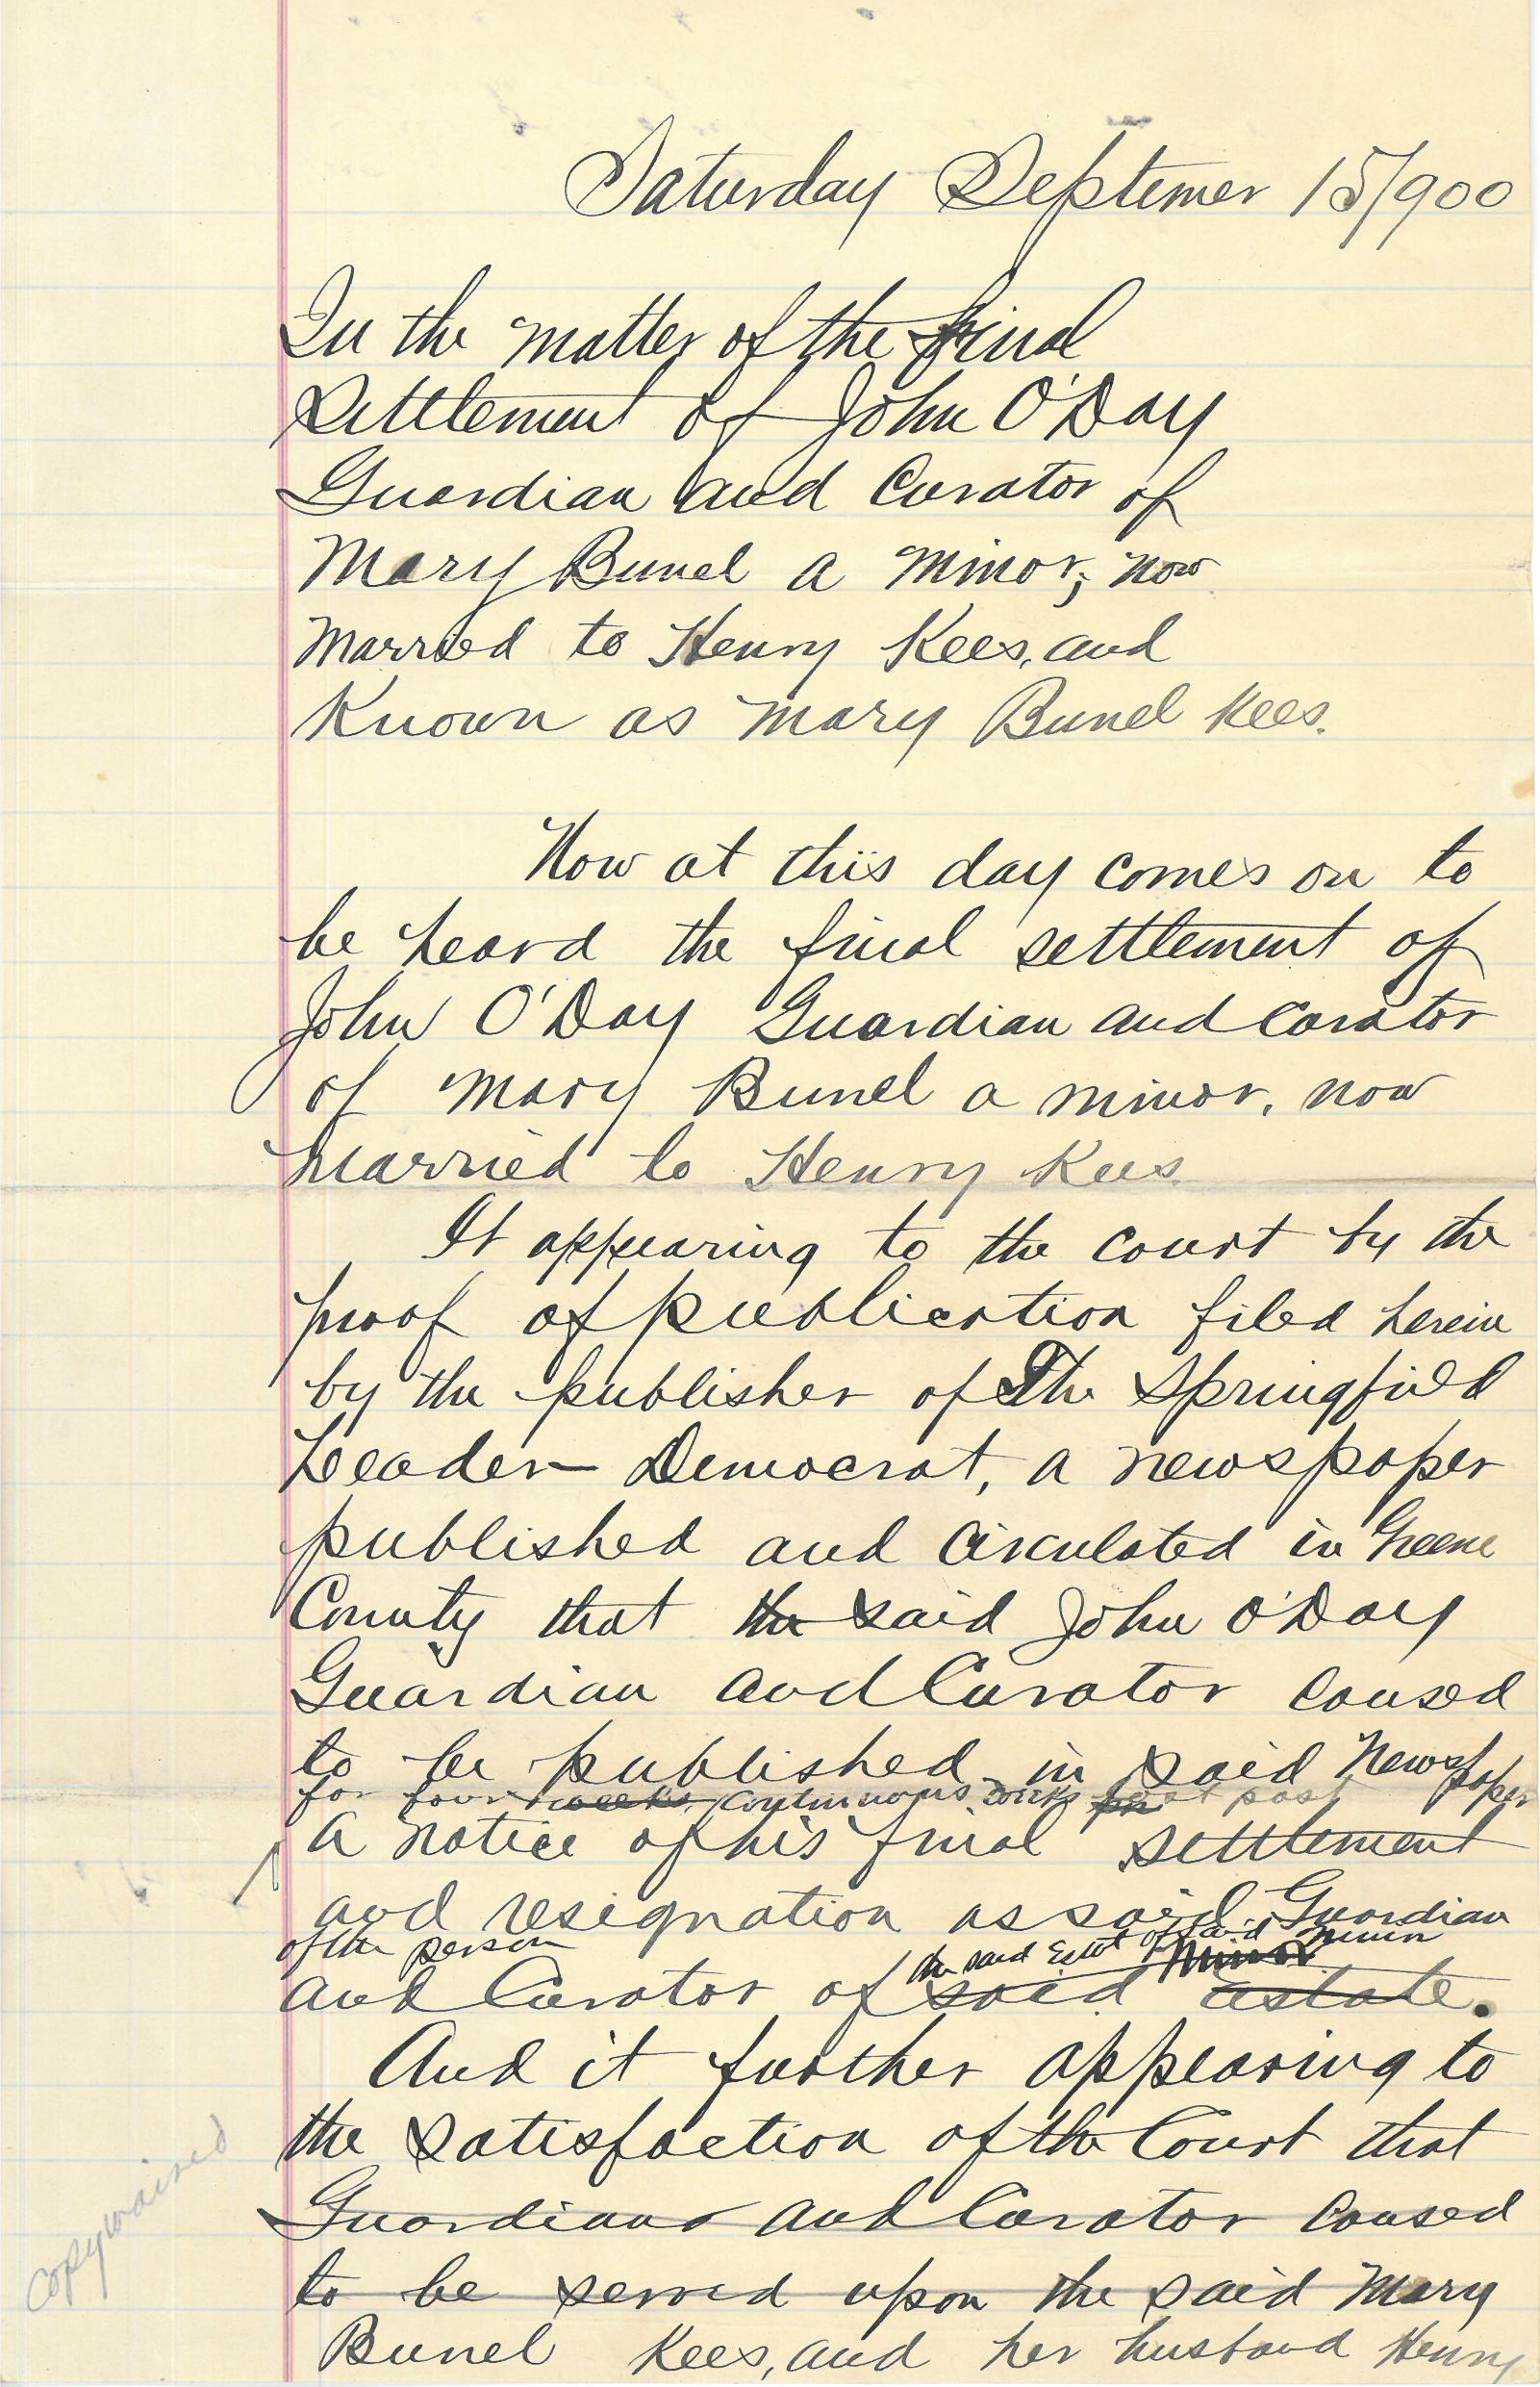 Saturday Septemer 15/900
In the matter of the final
Settlement of John O'Day
Guardian and Curator of
Mary Bunel a minor, now
married to Henry Kees, and
Known as Mary Bunel Kees.
Now at this day comes on to
be heard the final settlement of
John O'Day Guardian and Curator
of Mary Bunel a minor, now
married to Henry Kees
It appearing to the court by the
proof of publication filed herein
by the publisher of The Springfield
Leader-Democrat, a newspaper
published and circulated in Greene
County that the said John O'Day
Guardian and Curator caused
to be published in said Newspaper
for four weeks continuous weeks past
a notice of his final settlement
and resignation as said Guardian
of the person the said Estate of said minor minor
and Curator of said estate.
And it further appearing to
the satisfaction of the Court that
Guardian and Curator caused
to be served upon the said Mary
Bunel Kees, and her husband Henry